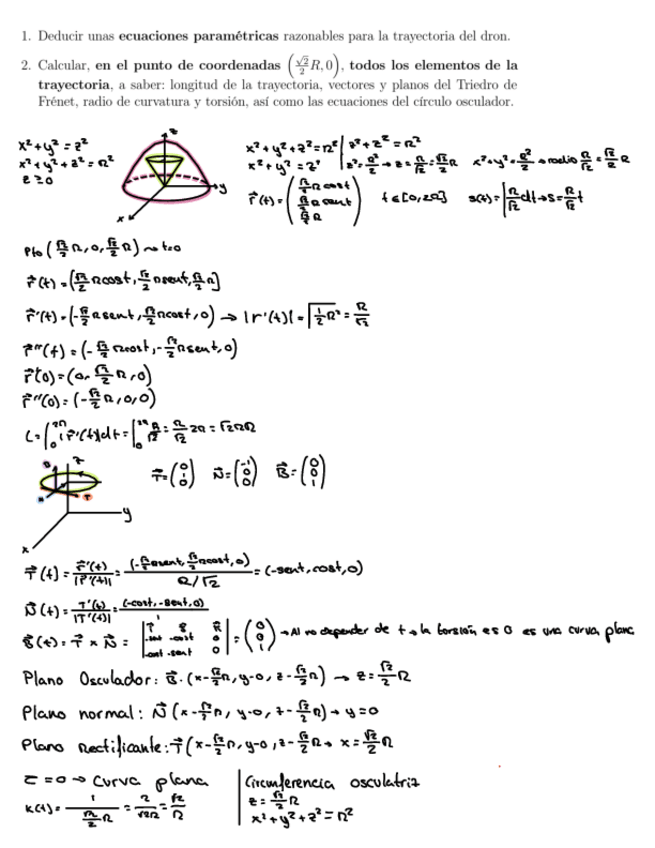 1. Deducir unas ecuaciones paramétricas razonables para la trayectoria del dron.
2. Calcular, en el punto de coordenadas (√2/2 R, 0), todos los elementos de la
trayectoria, a saber: longitud de la trayectoria, vectores y planos del Triedro de
Frénet, radio de curvatura y torsión, así como las ecuaciones del círculo osculador.
x² + y² = z²
x² + y² + z² = R²
z ≥ 0
z
y
x
x² + y² + z² = R² | z² + z² = R²
x² + y² = z² | z² = R²/2 → z = R/√2 = √2/2 R x² + y² = R²/2 → radio R/√2 = √2/2 R
r⃗(t) = (√2/2 R cost, √2/2 R sent, √2/2 R) t ∈ [0, 2π] s(t) = ∫ R/√2 dt → s = R/√2 t
Pto (√2/2 R, 0, √2/2 R) ~> t=0
r⃗(t) = (√2/2 R cost, √2/2 R sent, √2/2 R)
r⃗'(t) = (-√2/2 R sent, √2/2 R cost, 0) → |r'(t)| = √(1/2 R²) = R/√2
r⃗''(t) = (-√2/2 R cost, -√2/2 R sent, 0)
r⃗'(0) = (0, √2/2 R, 0)
r⃗''(0) = (-√2/2 R, 0, 0)
L = ∫₀^2π |r⃗'(t)| dt = ∫₀^2π R/√2 = R/√2 2π = √2 πR
z
y
x
T⃗ = (0 1 0) N⃗ = (-1 0 0) B⃗ = (0 0 1)
T⃗(t) = r⃗'(t)/|r⃗'(t)| = (-√2/2 R sent, √2/2 R cost, 0)/(R/√2) = (-sent, cost, 0)
N⃗(t) = T'(t)/|T'(t)| = (-cost, -sent, 0)
B⃗(t) = T⃗ × N⃗ = = (0 0 1) → Al no depender de t → la torsión es 0 es una curva plana
Plano Osculador: B⃗·(x-√2/2 R, y-0, z-√2/2 R) → z = √2/2 R
Plano normal: N⃗ (x-√2/2 R, y-0, z-√2/2 R) → y=0
Plano Rectificante: T⃗ (x-√2/2 R, y-0, z-√2/2 R → x = √2/2 R
τ = 0 → Curva plana
K(t) = 1/(√2/2 R) = 2/(√2R) = √2/R
Circunferencia osculatriz
z = √2/2 R
x² + y² + z² = R²